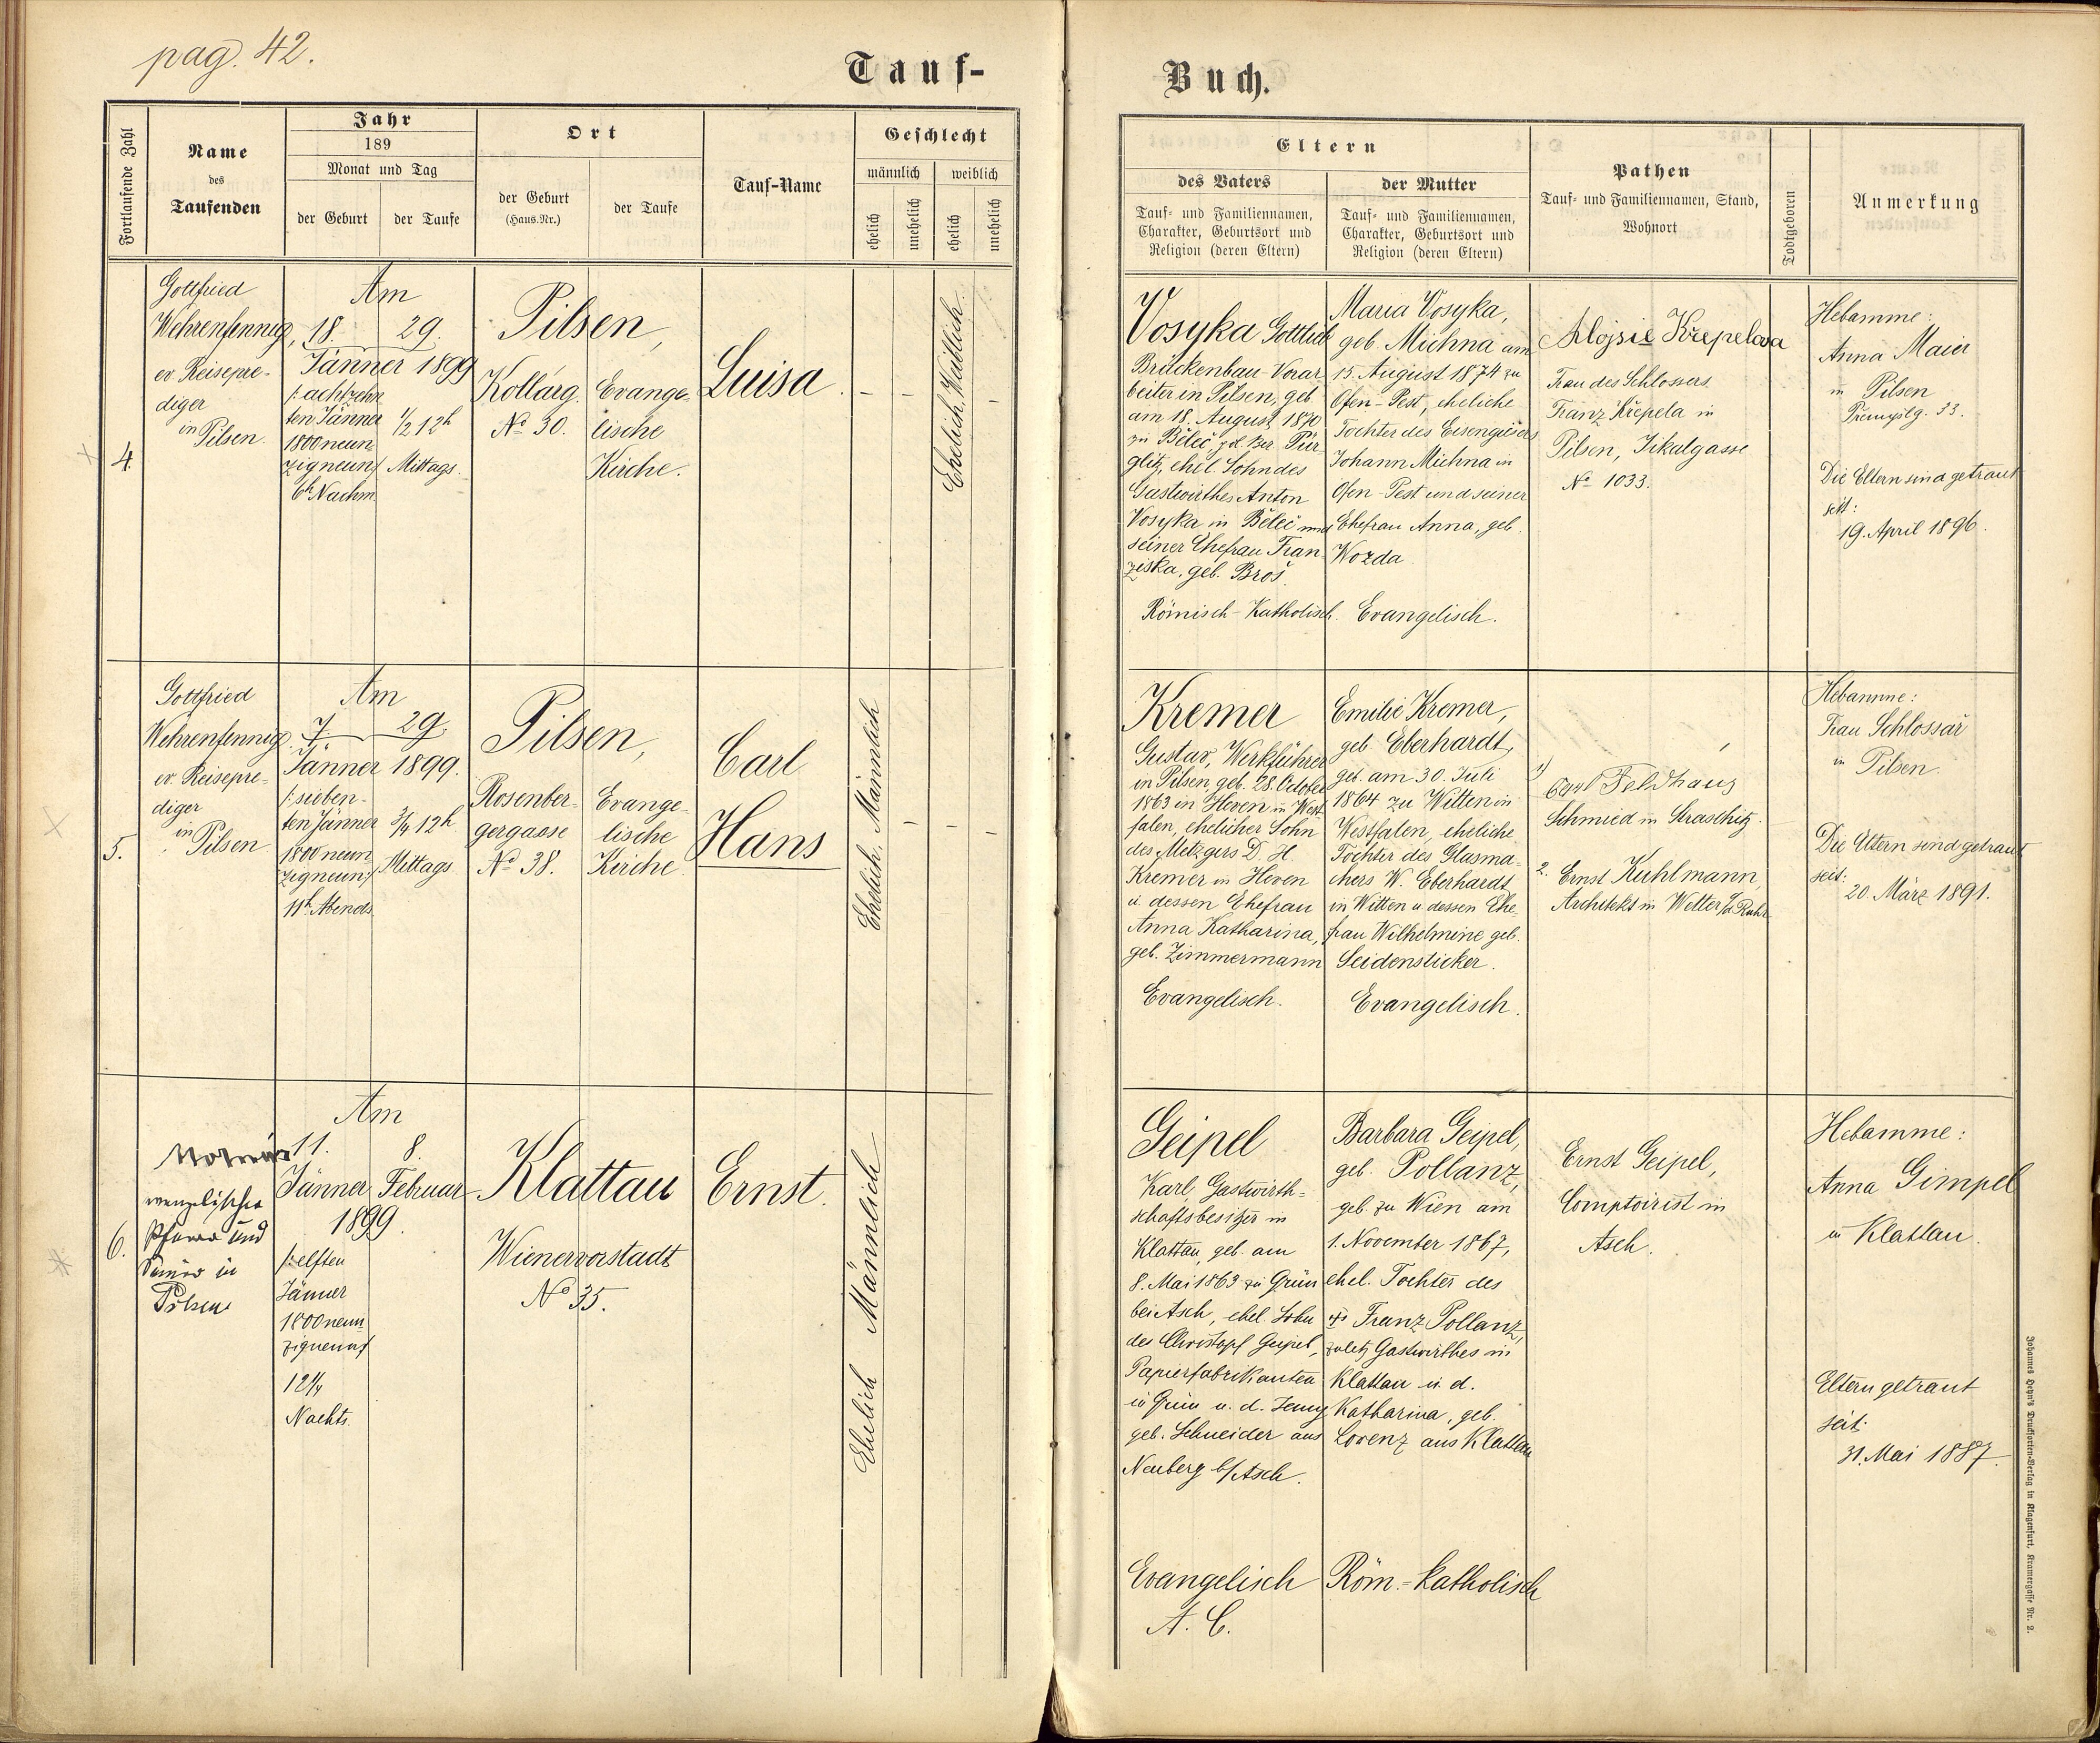 pag. 42.
Tauf-
Buch.
Fortlaufende Zahl
Name
des
Taufenden
Jahr
189
Monat und Tag
der Geburt
der Taufe
Ort
der Geburt
(Haus-Nr.)
der Taufe
Tauf-Name
Geschlecht
männlich
weiblich
ehelich
unehelich
ehelich
unehelich
Eltern
des Vaters
Tauf- und Familiennamen,
Charakter, Geburtsort und
Religion (deren Eltern)
der Mutter
Tauf- und Familiennamen,
Charakter, Geburtsort und
Religion (deren Eltern)
Pathen
Tauf- und Familiennamen, Stand,
Wohnort
Todtgeboren
Anmerkung
4.
Gottfried
Wehrenfennig,
ev. Reisepre-
diger
in Pilsen.
Am
18. 29.
Jänner 1899
/: achtzehn
ten Jänner
1800 neun
zigneun/
6h Nachm.
1/2 12h
Mittags.
Pilsen,
Kollárg.
No 30.
Evange-
lische
Kirche.
Luisa.
- -
Ehelich, Weiblich.
-
Vosyka Gottlieb
Brückenbau-Vorar
beiter in Pilsen, geb.
am 18. August 1870
zu Běleč pol. Bez. Pür-
glitz, ehel. Sohn des
Gastwirthes Anton
Vosyka in Běleč und
seiner Ehefrau Fran-
ziska, geb. Broš.
Römisch-Katholisch.
Maria Vosyka,
geb. Michna am
15. August 1874 zu
Ofen-Pest, eheliche
Tochter des Eisengiesers
Johann Michna in
Ofen-Pest und seiner
Ehefrau Anna, geb.
Wozda.
Evangelisch.
Alojsie Křepelova
Frau des Schlossers
Franz Křepela in
Pilsen, Jikalgasse
No 1033.
Hebamme:
Anna Maier
in Pilsen
Přemyslg. 33.
Die Eltern sind getraut
seit:
19. April 1896.
5.
Gottfried
Wehrenfennig
ev. Reisepre-
diger
in Pilsen
Am
7. 29.
Jänner 1899.
/: sieben-
ten Jänner
1800 neun
zigneun:/
11h Abends.
3/4 12h
Mittags.
Pilsen,
Rosenber-
gergasse
No 38.
Evange-
lische
Kirche.
Carl
Hans
Ehelich, Männlich
- - -
Kremer
Gustav, Werkführer
in Pilsen, geb. 28. October
1863 in Heven in West-
falen, ehelicher Sohn
des Metzgers D. H.
Kremer in Heven
u. dessen Ehefrau
Anna Katharina,
geb. Zimmermann
Evangelisch.
Emilie Kremer,
geb. Eberhardt,
geb. am 30. Juli
1864 zu Witten in
Westfalen, eheliche
Tochter des Glasma-
chers W. Eberhardt
in Witten u. dessen Ehe-
frau Wilhelmine geb.
Seidensticker.
Evangelisch.
1) Carl Feldhaus
Schmied in Straschitz.
2. Ernst Kuhlmann,
Architekt in Wetter a/d Ruhr
Hebamme:
Frau Schlossař
in Pilsen.
Die Eltern sind getraut
seit:
20. März 1891.
6.
Pfarrer und
Senior in
Pilsen
Am
11. 8.
Jänner Februar
1899.
/: elften
Jänner
1800 neun
zigneun/
12 1/4
Nachts.
Klattau
Wienervorstadt
No 35.
Ernst.
Ehelich Männlich
Geipel
Karl, Gastwirth-
schaftsbesitzer in
Klattau, geb. am
8. Mai 1863 zu Grün
bei Asch, ehel. Sohn
des Christopf Geipel,
Papierfabrikanten
in Grün u. d. Jenny
geb. Schneider aus
Neuberg b/Asch.
Evangelisch
A. C.
Barbara Geipel,
geb. Pollanz,
geb. zu Wien am
1. November 1867,
ehel. Tochter des
Franz Pollanz,
zuletz Gastwirthes in
Klattau u. d.
Katharina, geb.
Lorenz aus Klattau
Röm.-katholisch
Ernst Geipel,
Comptoirist in
Asch.
Hebamme:
Anna Gimpel
in Klattau.
Eltern getraut
seit:
31. Mai 1887.
Johannes Heyn's Drucksorten-Verlag in Klagenfurt, Kramergasse Nr. 2.